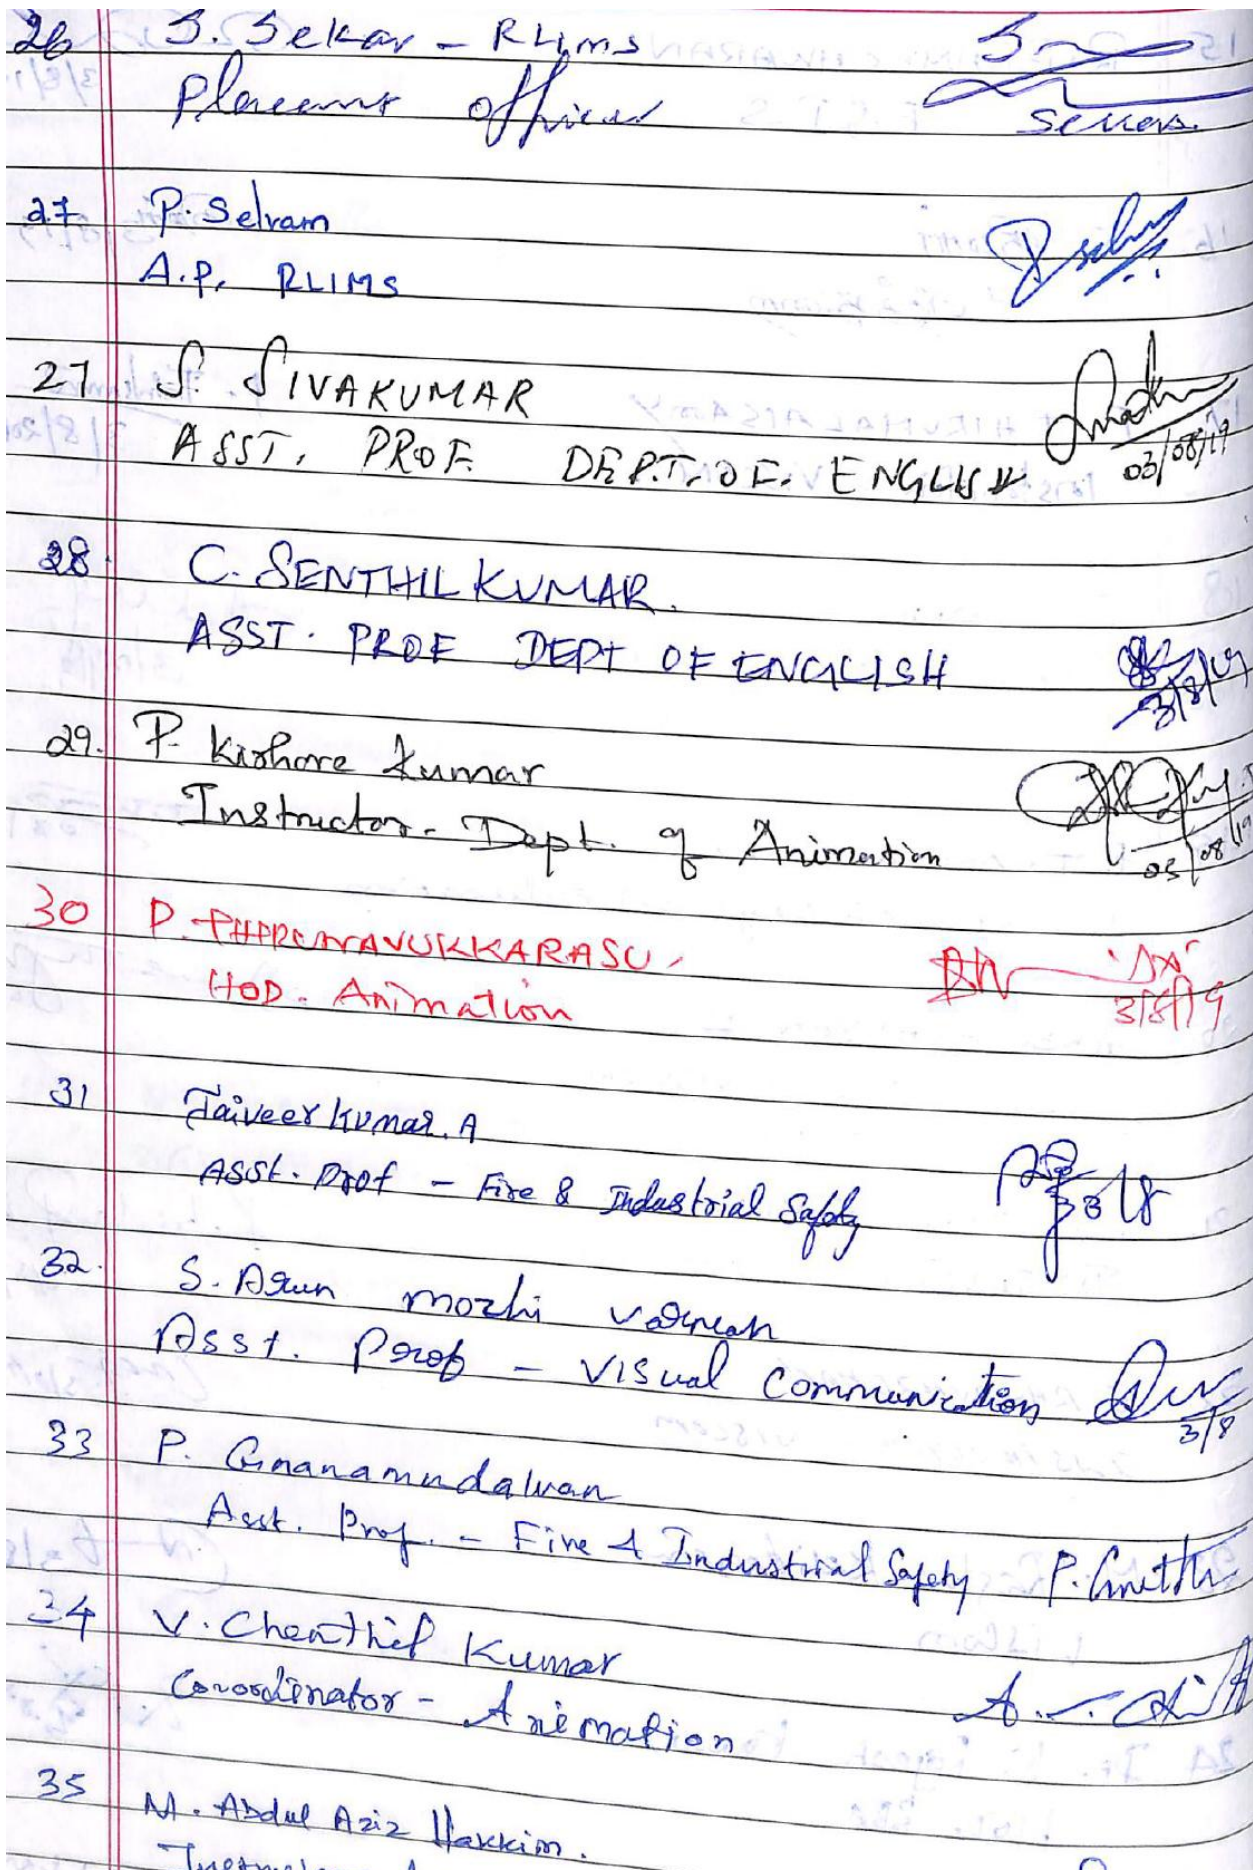 26 S. Sekar - RLIMS
Placement Officer
Sekar.
27 P. Selvam
A.P. RLIMS
27 S. SIVAKUMAR
ASST. PROF. DEPT. OF. ENGLISH
03/08/19
28. C. SENTHIL KUMAR.
ASST. PROF DEPT OF ENGLISH
3/8/19
29. P. Kishore Kumar
Instructor - Dept. of Animation
03/08/19
30 D. THIRUNAVUKKARASU.
HOD - Animation
3/8/19
31 Jaiveer Kumar. A
Asst. Prof - Fire & Industrial Safety
32. S. Arun mozhi
Asst. Prof - Visual Communication
3/8
33 P. Gnanamudalvan
Asst. Prof. - Fire & Industrial Safety
34 V. Chenthil Kumar
Co-ordinator - Animation
35 M. Abdul Aziz Hakkim.